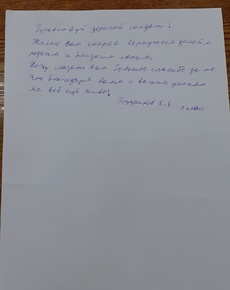 Здравствуй дорогой солдат!
Желаю вам скорее вернуться домой, к
родным и близким своим.
Хочу сказать вам большое спасибо за то
что благодаря вам и вашим усилиям
мы всё ещё живы.